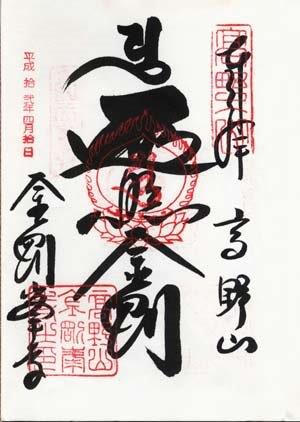 奉拝 高野山
遍照金剛
平成拾弐年四月拾日
金剛峯寺
高野山
金剛峯
寺之印